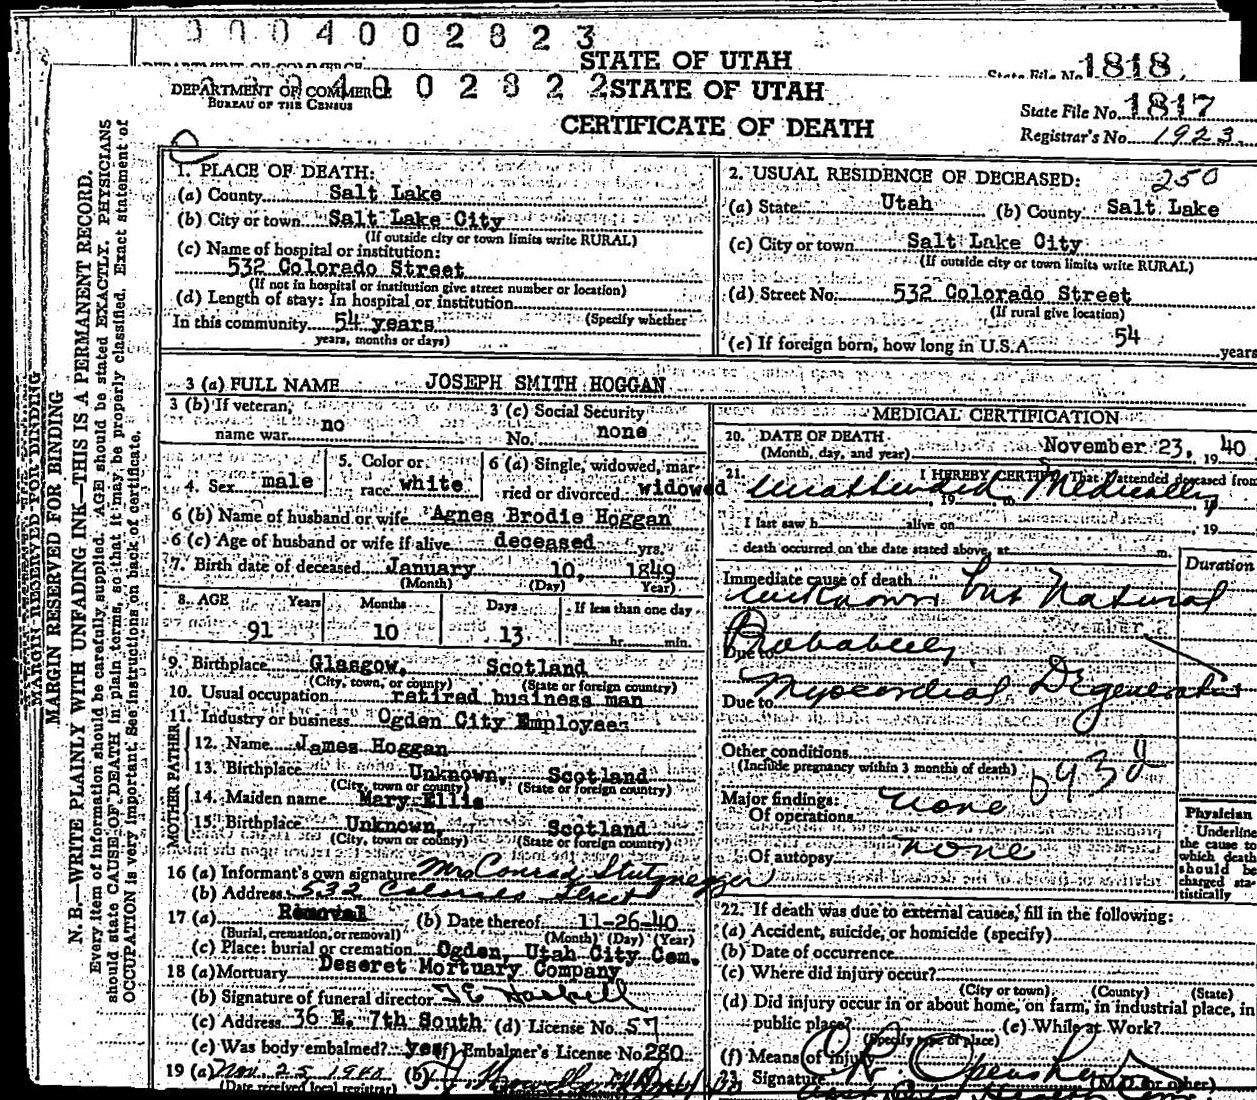 0004002823
STATE OF UTAH
State File No. 1818
DEPARTMENT OF COMMERCE
0004002822
STATE OF UTAH
BUREAU OF THE CENSUS
State File No. 1817
CERTIFICATE OF DEATH
Registrar's No. 1923
MARGIN RESERVED FOR BINDING
MARGIN RESERVED FOR BINDING
N. B.—WRITE PLAINLY WITH UNFADING INK—THIS IS A PERMANENT RECORD.
Every item of information should be carefully supplied. AGE should be stated EXACTLY. PHYSICIANS
should state CAUSE OF DEATH in plain terms, so that it may be properly classified. Exact statement of
OCCUPATION is very important. See instructions on back of certificate.
1. PLACE OF DEATH:
(a) County Salt Lake
(b) City or town Salt Lake City
(If outside city or town limits write RURAL)
(c) Name of hospital or institution:
532 Colorado Street
(If not in hospital or institution give street number or location)
(d) Length of stay: In hospital or institution
(Specify whether
In this community 54 years
years, months or days)
2. USUAL RESIDENCE OF DECEASED: 250
(a) State Utah (b) County Salt Lake
(c) City or town Salt Lake City
(If outside city or town limits write RURAL)
(d) Street No. 532 Colorado Street
(If rural give location)
(e) If foreign born, how long in U.S.A. 54 years
3 (a) FULL NAME JOSEPH SMITH HOGGAN
3 (b) If veteran, name war no
3 (c) Social Security No. none
4. Sex male
5. Color or race white
6 (a) Single, widowed, married or divorced widowed
6 (b) Name of husband or wife Agnes Brodie Hoggan
6 (c) Age of husband or wife if alive deceased yrs.
7. Birth date of deceased January 10, 1849
(Month) (Day) Year)
8. AGE Years Months Days If less than one day
91 10 13 hr. min.
9. Birthplace Glasgow, Scotland
(City, town, or county) (State or foreign country)
10. Usual occupation retired business man
11. Industry or business Ogden City Employees
FATHER
12. Name James Hoggan
13. Birthplace Unknown, Scotland
(City, town or county) (State or foreign country)
MOTHER
14. Maiden name Mary Ellis
15. Birthplace Unknown, Scotland
(City, town or county) (State or foreign country)
16 (a) Informant's own signature Mrs Conrad Stutznegger
(b) Address 532 Colorado Street
17 (a) Removal (b) Date thereof 11-26-40
(Burial, cremation, or removal) (Month) (Day) (Year)
(c) Place: burial or cremation Ogden, Utah City Cem.
18 (a) Mortuary Deseret Mortuary Company
(b) Signature of funeral director
(c) Address 36 E. 7th South (d) License No. 57
(e) Was body embalmed? yes (f) Embalmer's License No. 280
19 (a) Nov. 25 1940 (b)
(Date received local registrar)
MEDICAL CERTIFICATION
20. DATE OF DEATH
(Month, day, and year) November 23, 1940
21. I HEREBY CERTIFY That I attended deceased from
Unattended Medically
19
I last saw h alive on 19
death occurred on the date stated above, at m.
Duration
Immediate cause of death
Unknown but Natural
November
Due to Probabeley
Due to Myocordial Degeneration
Other conditions
(Include pregnancy within 3 months of death)
093d
Major findings:
Of operations none
Of autopsy none
Physician
Underline
the cause to
which death
should be
charged sta-
tistically
22. If death was due to external causes, fill in the following:
(a) Accident, suicide, or homicide (specify)
(b) Date of occurrence
(c) Where did injury occur?
(City or town) (County) (State)
(d) Did injury occur in or about home, on farm, in industrial place, in
public place? (e) While at Work?
(Specify type of place)
(f) Means of injury
23. Signature (M.D. or other)